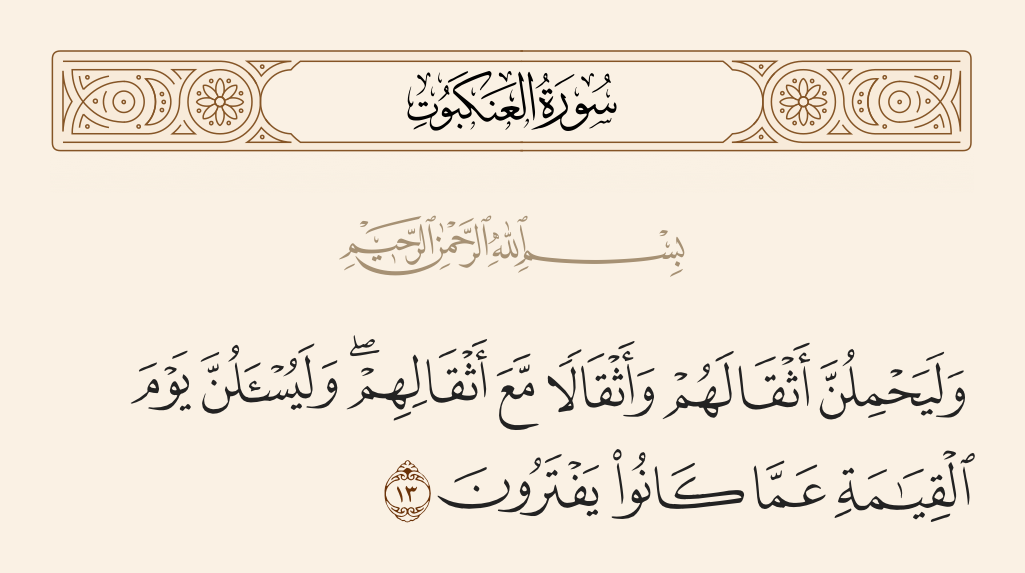 سُورَةُ العَنكَبُوتِ
بِسْمِ ٱللَّهِ ٱلرَّحْمَٰنِ ٱلرَّحِيمِ
وَلَيَحْمِلُنَّ أَثْقَالَهُمْ وَأَثْقَالًا مَّعَ أَثْقَالِهِمْ ۖ وَلَيُسْـَٔلُنَّ يَوْمَ
ٱلْقِيَـٰمَةِ عَمَّا كَانُوا۟ يَفْتَرُونَ ١٣